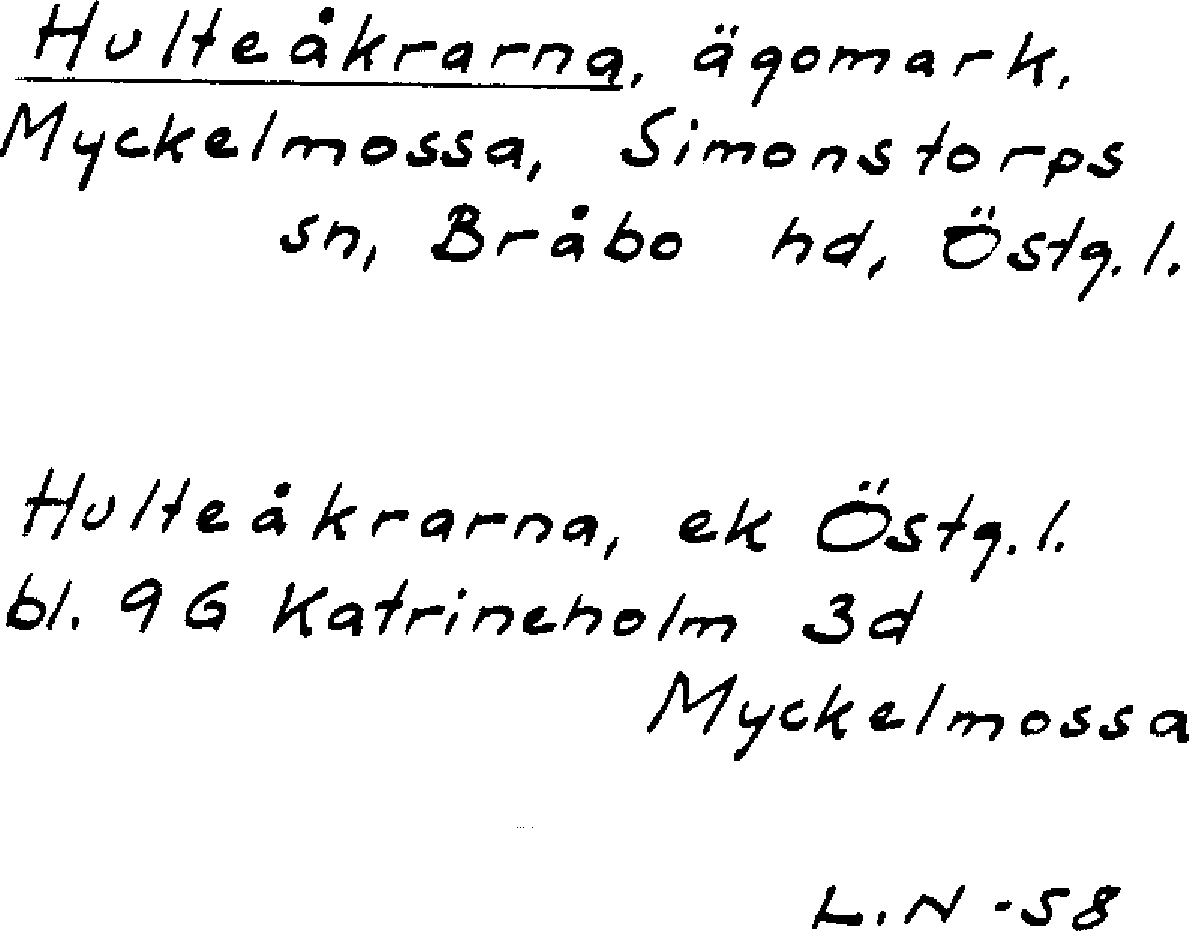 Hulteåkrarna, ägomark.
Myckelmossa, Simonstorps
sn, Bråbo hd, Östg.l.
Hulteåkrarna, ek Östg.l.
bl. 9G Katrineholm 3d
Myckelmossa
L.N -58